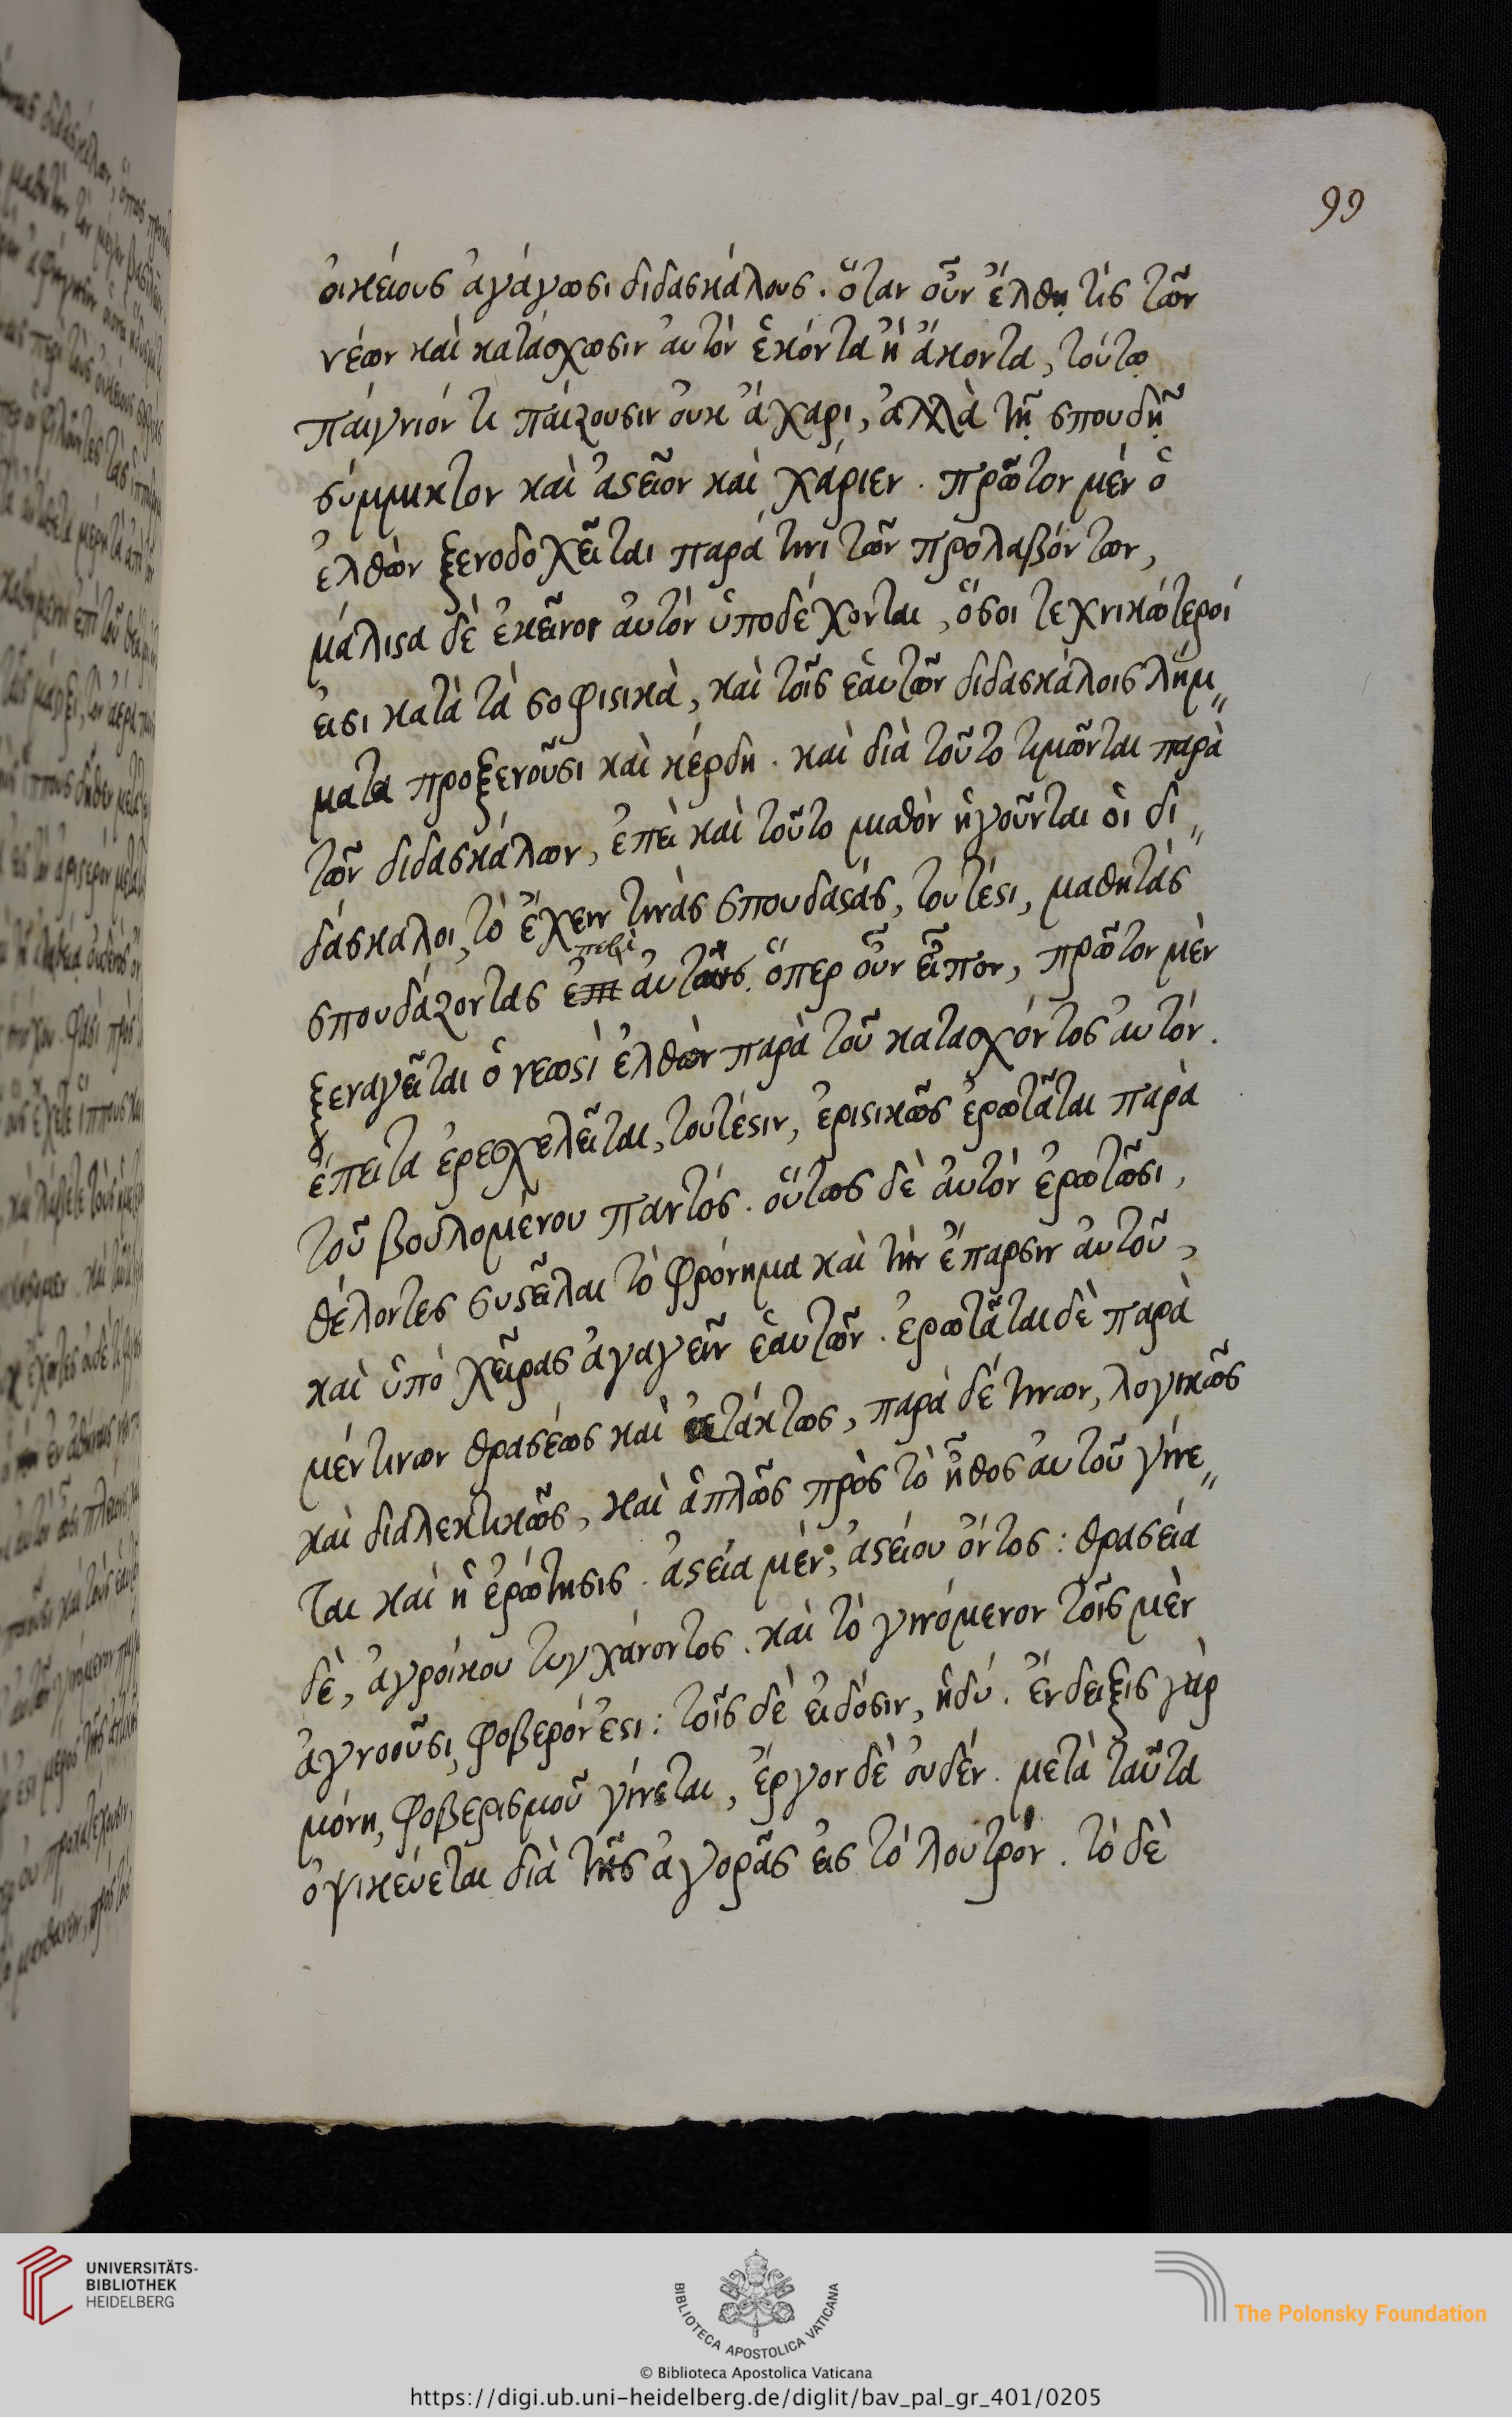 99
οἰκείους ἀγάγωσι διδασκάλους. ὅταν οὖν ἔλθη τίς τῶν
νέων καὶ κατάσχωσιν αὐτὸν ἑκόντα ἢ ἄκοντα, τούτω
παίγνιόν τι παίζουσιν οὐκ ἄχαρι, ἀλλὰ τῇ σπουδῇ
σύμμικτον καὶ ἀστεῖον καὶ χάριεν. πρῶτον μὲν ὁ
ἐλθὼν ξενοδοχεῖται παρά τινι τῶν προλαβόντων,
μάλιστα δὲ ἐκεῖνοι αὐτὸν ὑποδέχονται, ὅσοι τεχνικώτεροί
εἰσι κατὰ τὰ σοφιστικὰ, καὶ τοῖς ἑαυτῶν διδασκάλοις λήμ„
ματα προξενοῦσι καὶ κέρδη. καὶ διὰ τοῦτο τιμῶνται παρὰ
τῶν διδασκάλων, ἐπεὶ καὶ τοῦτο μισθὸν ἡγοῦνται οἱ δι„
δάσκαλοι, τὸ ἔχειν τινὰς σπουδαστὰς, τουτέστι, μαθητὰς
περὶ
σπουδάζοντας ἐπ αὐτοὺς. ὅπερ οὖν εἶπον, πρῶτον μὲν
ξεναγεῖται ὁ νεωστὶ ἐλθὼν παρὰ τοῦ κατασχόντος αὐτόν.
ἔπειτα ἐρεσχελεῖται, τουτέστιν, ἐριστικῶς ἐρωτᾶται παρὰ
τοῦ βουλομένου παντός. οὕτως δὲ αὐτὸν ἐρωτῶσι,
θέλοντες συστεῖλαι τὸ φρόνημα καὶ τὴν ἔπαρσιν αὐτοῦ,
καὶ ὑπὸ χεῖρας ἀγαγεῖν ἑαυτῶν. ἐρωτᾶται δὲ παρὰ
μέν τινων θρασέως καὶ τάκτως, παρὰ δέ τινων, λογικῶς
καὶ διαλεκτικῶς, καὶ ἁπλῶς πρὸς τὸ ἦθος αὐτοῦ γίνε„
ται καὶ ἡ ἐρώτησις. ἀστεία μὲν, ἀστείου ὄντος: θρασεία
δὲ, ἀγροίκου τυγχάνοντος. καὶ τὸ γινόμενον τοῖς μὲν
ἀγνοοῦσι, φοβερόν ἐστι: τοῖς δὲ εἰδόσιν, ἡδύ. ἔνδειξις γὰρ
μόνη, φοβερισμοῦ γίνεται, ἔργον δὲ οὐδέν. μετὰ ταῦτα
ὀψικεύεται διὰ τῆς ἀγορᾶς εἰς τὸ λουτρόν. τὸ δὲ
UNIVERSITÄTS-
BIBLIOTHEK
HEIDELBERG
BIBLIOTECA APOSTOLICA VATICANA
© Biblioteca Apostolica Vaticana
The Polonsky Foundation
https://digi.ub.uni-heidelberg.de/diglit/bav_pal_gr_401/0205